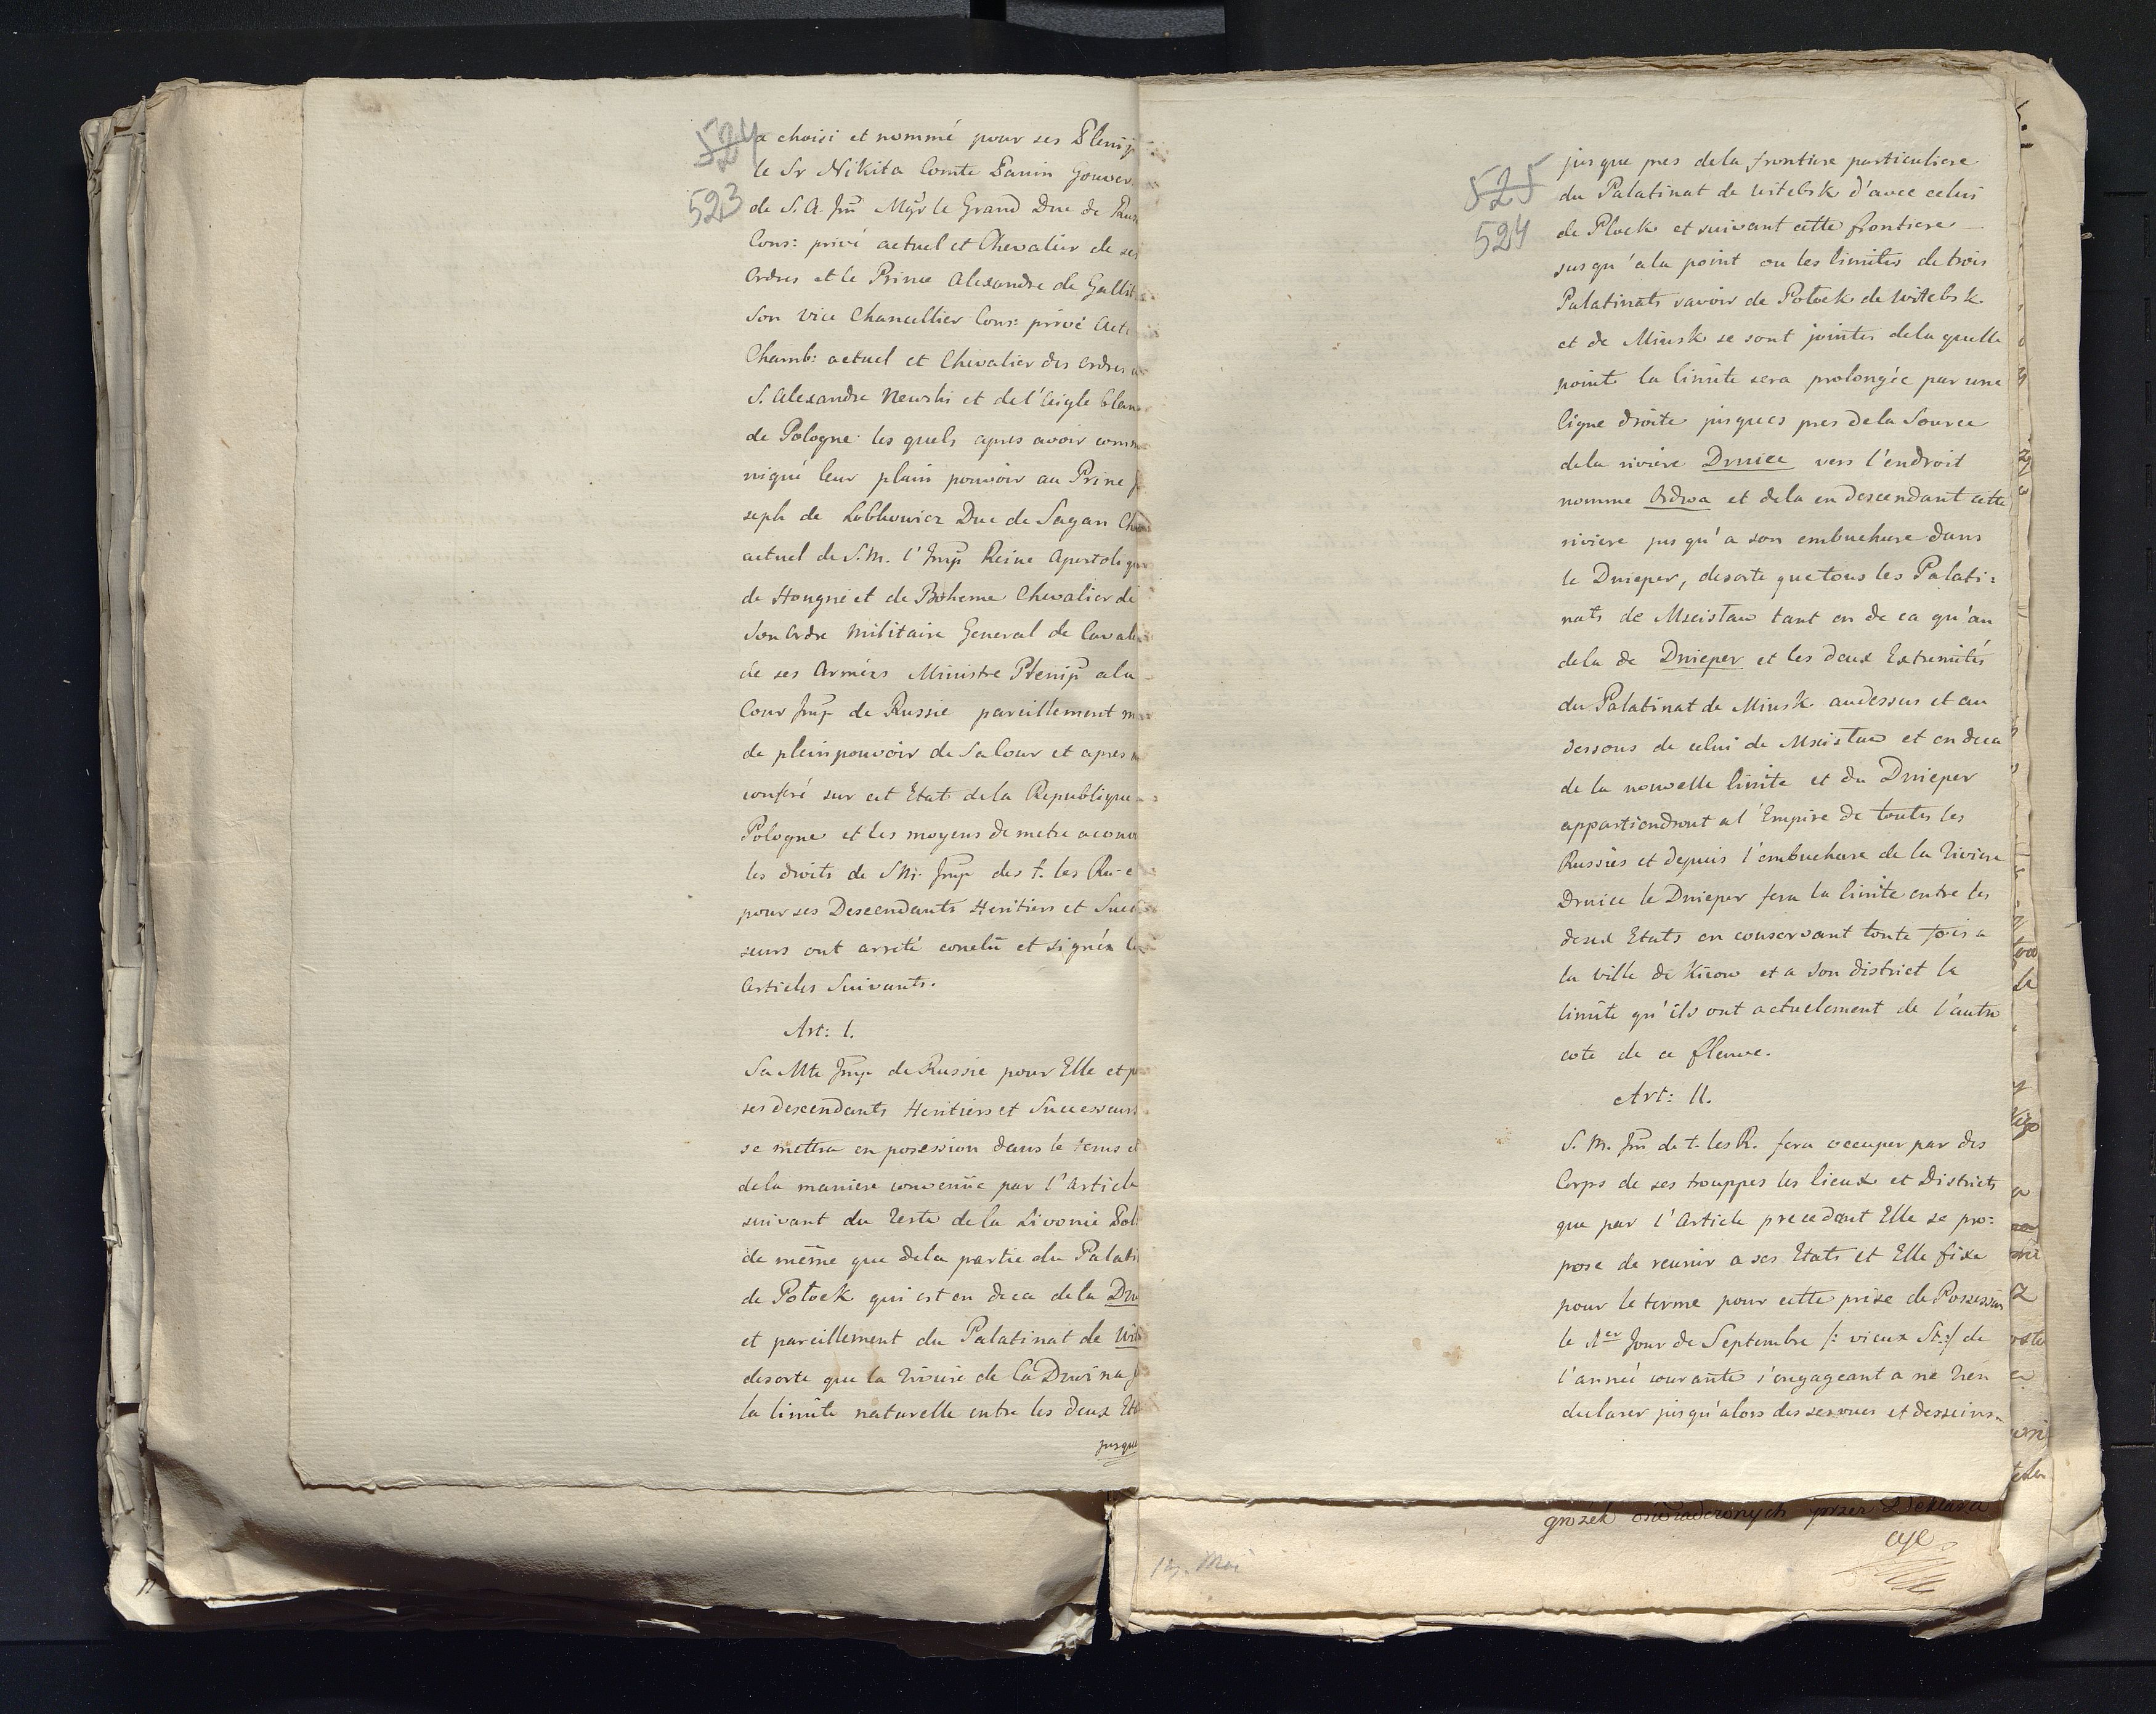 524
523
a choisi et nommé pour ses Plenip
le Sr Nikita Comte Panin Gouver
de S. A. Im̄ Mgr le Grand Duc de Rus
Cons: privé actuel et Chevalier de ses
Ordres et le Prince Alexandre de Gallit
Son Vice Chancellier Cons: privé Actu
Chamb: actuel et Chevalier des Ordres
S. Alexandre Newski et de l'Aigle blan
de Pologne les quels apres avoir comm
niqué leur plain pouvoir au Prine J
seph de Lobkowicz Duc de Sagan Cha
actuel de S. M. l'Imp̄ Reine Apostolique
de Hougrie et de Boheme Chevalier de
Son Ordre Militaire General de Caval
de ses Armées Ministre Plenip̄ a la
Cour Imp de Russie pareillement m
de plein pouvoir de Sa Cour et apres
conferé sur cet Etat de la Republique
Pologne et les moyens de metre a couv
les droits de S M. Imp des t. les Rus
pour ses Descendants Heritiers et Suc
seurs ont arreté conclû et signés le
Articles Suivants.
Art: I.
Sa Mte Imp de Russie pour Elle et p
ses descendants Heritiers et Successeurs
se mettra en posession dans le tems et
de la maniere convenüe par l'Article
suivant du reste de la Livonie Pol
de même que de la partie du Palati
de Potock qui est en deca de la Dw
et pareillement du Palatinat de Wi
desorte que la riviere de la Dwina f
la limite naturelle entre les deux Et
jusque
525
524
jusque pres de la frontiere particuliere
du Palatinat de Witebsk d'avec celui
de Plock et suivant cette frontiere
jusqu'a la point ou les limites de trois
Palatinats savoir de Potock de Witebsk
et de Minsk se sont jointes de la quelle
pointe la limite sera prolongée par une
ligne droite jusques pres de la Source
de la riviere Druiec vers l'endroit
nomme Ordwa et dela en descendant cette
riviere jusqu'a son embuchure dans
le Dnieper, desorte que tous les Palati=
nats de Mscistaw tant en de ca qu'au
dela de Dnieper et les deux Extremités
du Palatinat de Minsk audessus et au
dessous de celui de Mscistaw et en deca
de la nouvelle limite et du Dnieper
appartiendront a l'Empire de toutes les
Russies et depuis l'embuchure de la riviere
Druiec le Dnieper fera la limite entre les
deux Etats en conservant toute fois a
la ville de Kiiow et a son district la
limite qu'ils ont actuelement de l'autre
cote de ce fleuve.
Art: II.
S. M. Im̄ de t. les R. fera occuper par des
Corps de ses trouppes les lieux et Districts
que par l'Article precedent Elle se pro=
pose de reunir a ses Etats et Elle fixe
pour le terme pour cette prise de Possession
le 1er Jour de Septembre /: vieux St:/ de
l'année courante s'engageant a ne rien
declarer jusqu'alors des ses vues et desseins
grozek oswiadczonych przez Deklara
cye
17. Mai